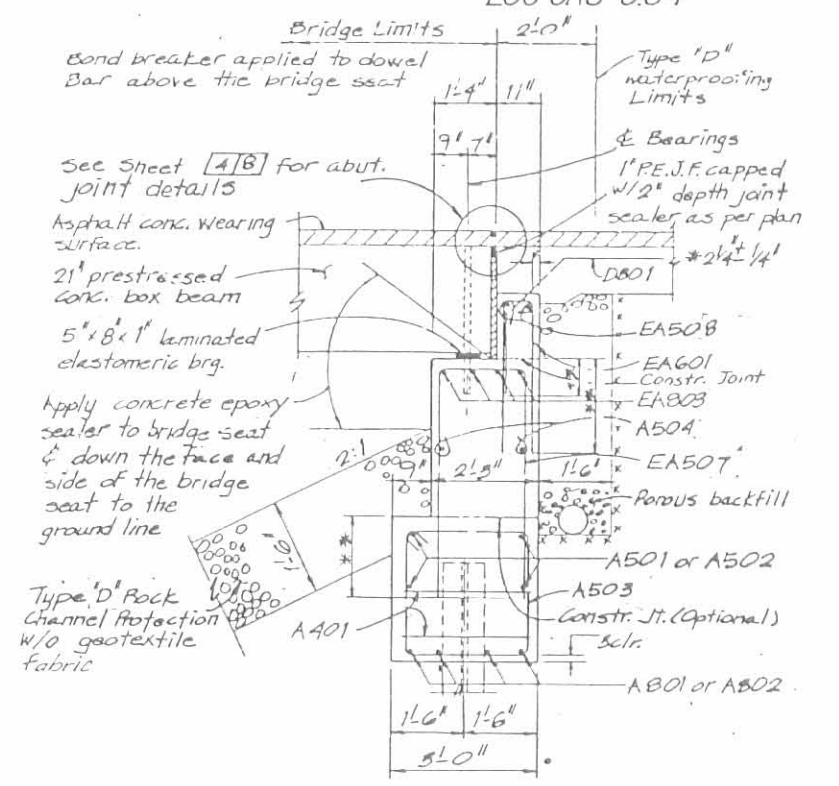 Bridge Limits
2'-0"
Bond breaker applied to dowel
Bar above the bridge seat
Type "D"
waterproofing
Limits
1'-4"
11"
9"
7"
℄ Bearings
See Sheet 4/8 for abut.
joint details
1" P.E.J.F. capped
w/2" depth joint
sealer as per plan
Asphalt conc. wearing
surface.
*2 1/4"± 1/4"
D801
21" prestressed
conc. box beam
5"x8"x1" laminated
elastomeric brg.
EA508
EA601
Constr. Joint
EA803
A504
EA507
Apply concrete epoxy
sealer to bridge seat
& down the face and
side of the bridge
seat to the
ground line
2:1
9"
2'-5"
1'-6"
Porous backfill
1'-6"
**
A501 or A502
A503
Constr. Jt. (Optional)
3clr.
Type "D" Rock
Channel Protection
W/O geotextile
fabric
A401
A801 or A802
1'-6"
1'-6"
3'-0"